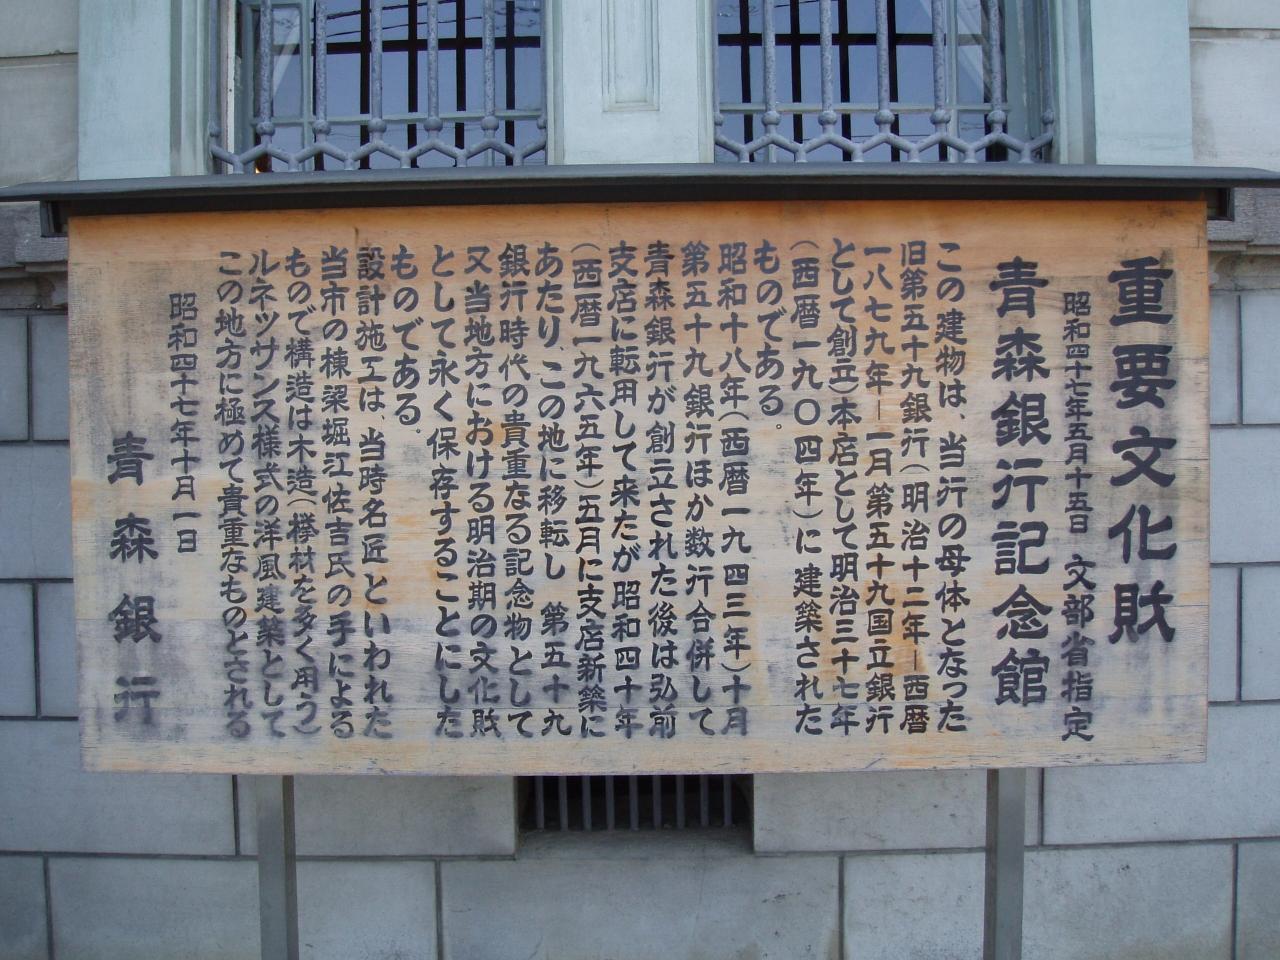 重要文化財
昭和四十七年五月十五日　文部省指定
青森銀行記念館
この建物は、当行の母体となった
旧第五十九銀行（明治十二年―西暦
一八七九年―一月第五十九国立銀行
として創立）本店として明治三十七年
（西暦一九〇四年）に建築された
ものである。
昭和十八年（西暦一九四三年）十月
第五十九銀行ほか数行合併して
青森銀行が創立された後は弘前
支店に転用して来たが昭和四十年
（西暦一九六五年）五月に支店新築に
あたり、この地に移転し　第五十九
銀行時代の貴重なる記念物として
又当地方における明治期の文化財
として永く保存することにした
ものである。
設計施工は、当時名匠といわれた
当市の棟梁堀江佐吉氏の手による
もので構造は木造（欅材を多く用う）
ルネッサンス様式の洋風建築として
この地方に極めて貴重なものとされる
昭和四十七年十月一日
青森銀行